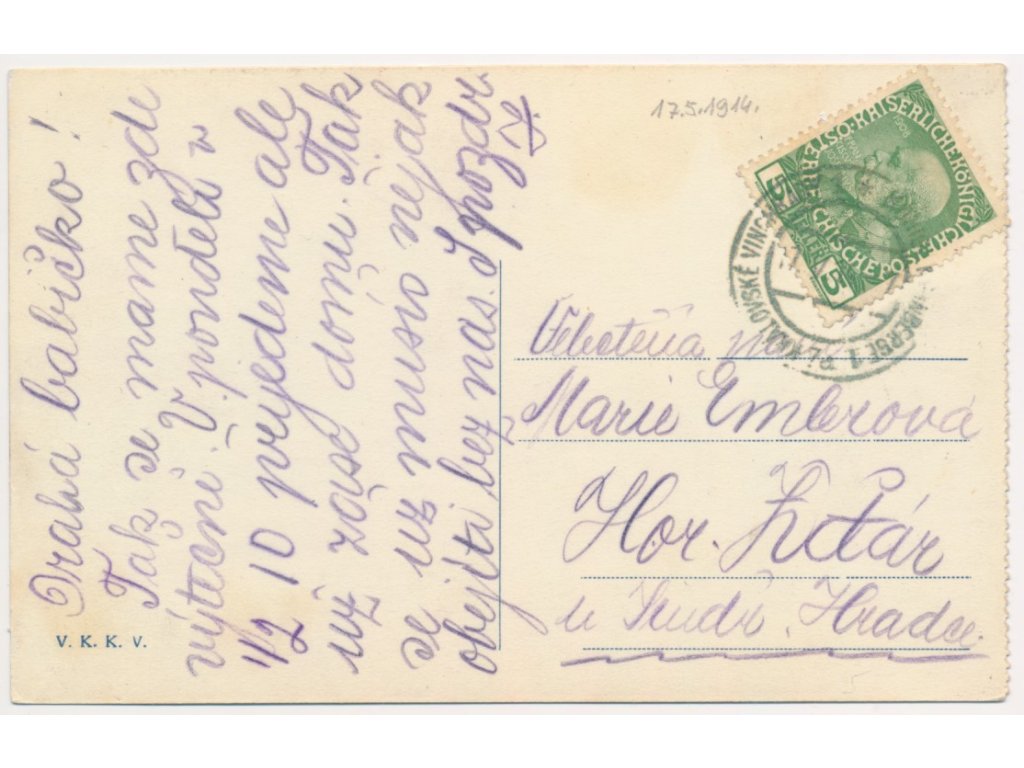 Drahá babičko!
Tak se mame zde
výtečně. V ponděli v
1/2 10 přijedeme ale
už zase domu. Tak
se už musíš nějak
obejíti bez nas. S pozdr.
17.5.1914.
KAISERLICHE KÖNIGLICHE
ÖSTERREICHISCHE POST
1908
5
5
KRÁLOVSKÉ
Velectěná
Marie Emlerová
Hor. Žďár
u Jindř. Hradce.
V. K. K. V.